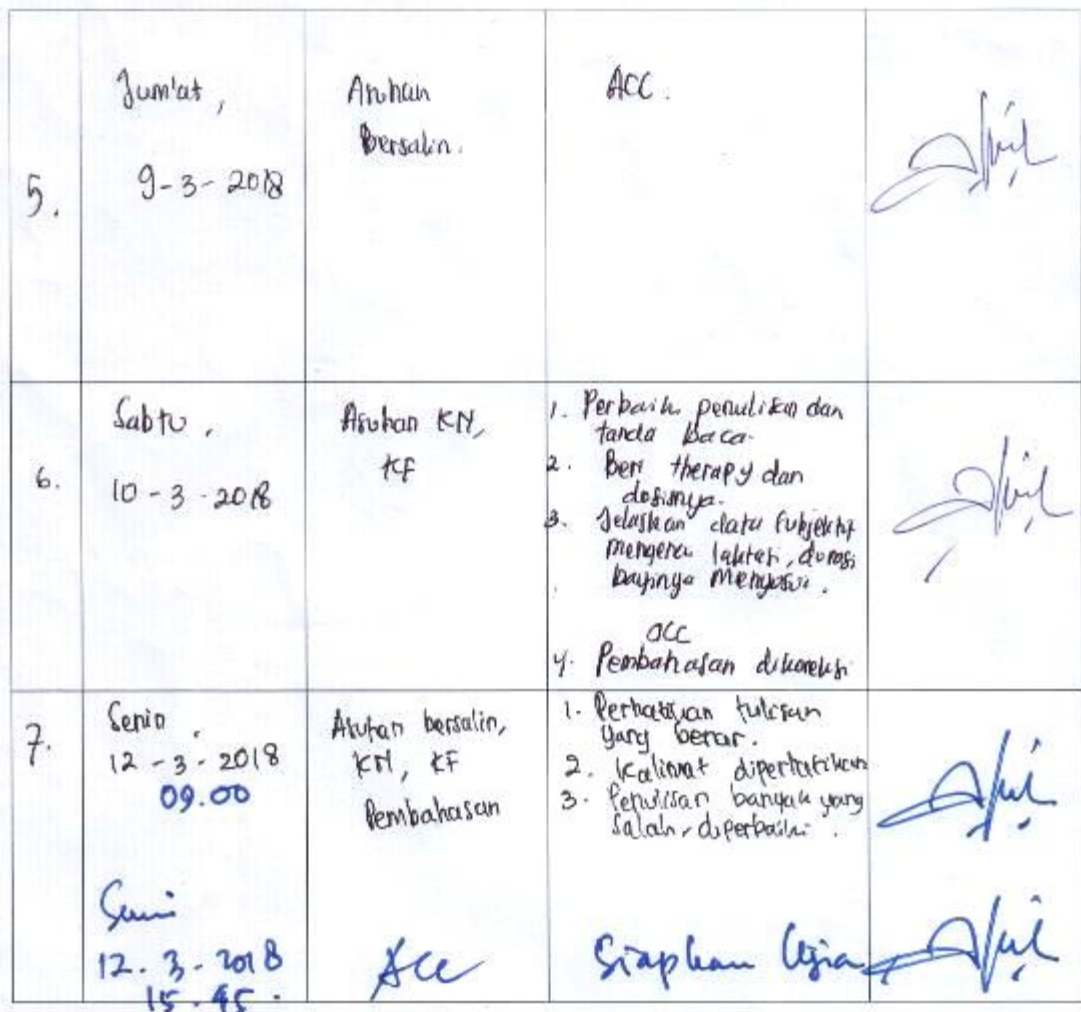 5.
Jum'at,
9-3-2018
Asuhan
Bersalin.
ACC.
6.
Sabtu,
10-3-2018
Asuhan KN,
KF
1. Perbaiki penulisan dan
tanda baca.
2. Beri therapy dan
dosisnya.
3. Jelaskan data subjektif
mengenai laktasi, durasi
bayinya menyusui.
acc
4. Pembahasan dikoreksi
7.
Senin,
12-3-2018
09.00
Asuhan bersalin,
KN, KF
Pembahasan
1. Perhatikan tulisan
yang benar.
2. Kalimat diperhatikan
3. Penulisan banyak yang
salah, diperbaiki.
Senin
12.3-2018
15.45.
Acc
Siapkan Ujian